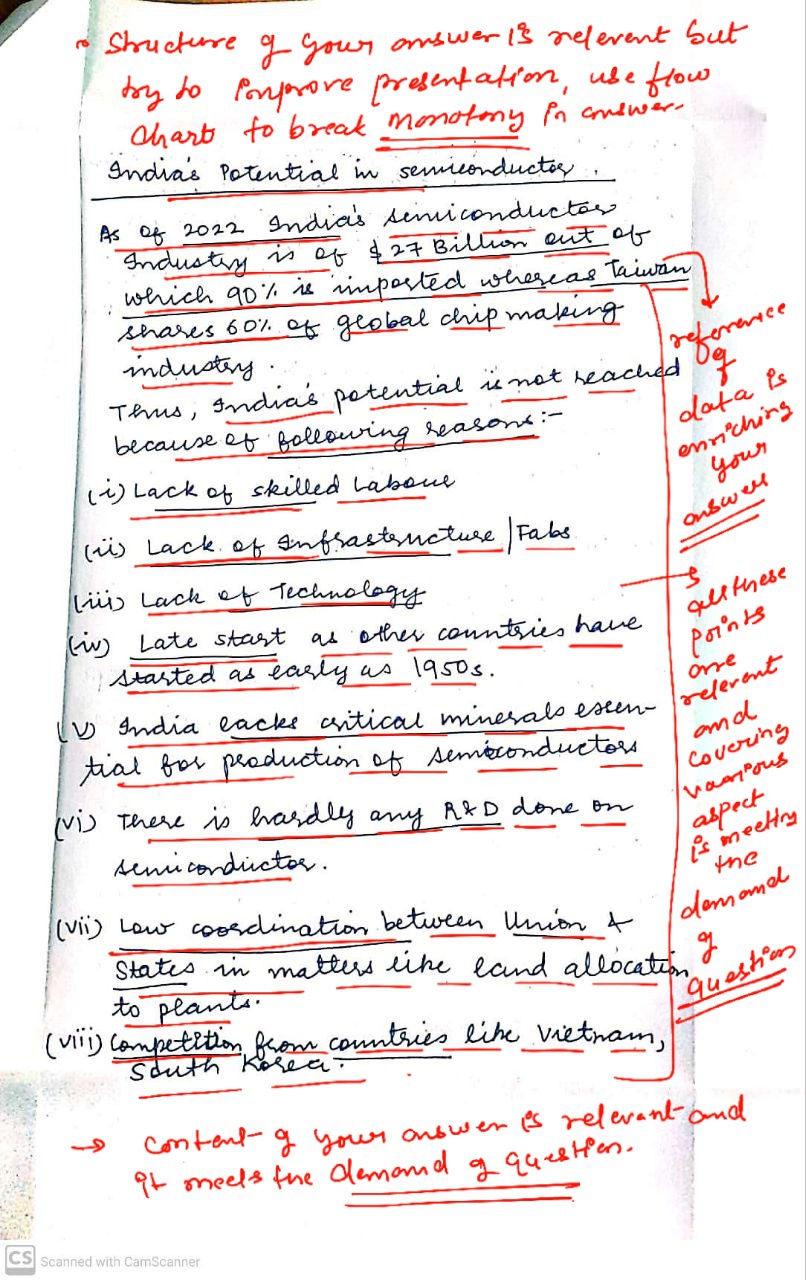 Structure of your answer is relevent but
try to improve presentation, use flow
chart to break monotony in answer.
India's Potential in semiconductor.
As of 2022 India's semiconductor
Industry is of $ 27 Billion out of
which 90% is imported whereas Taiwan
shares 60% of global chip making
industry.
Thus, India's potential is not reached
because of following reasons:-
(i) Lack of skilled Labour
(ii) Lack of Infrastructure | Fabs
(iii) Lack of Technology
(iv) Late start as other countries have
started as early as 1950s.
(v) India lacks critical minerals essen-
tial for production of semiconductors
(vi) There is hardly any R&D done on
semiconductor.
(vii) Low coordination between Union &
States in matters like land allocation
to plants.
(viii) Competition from countries like Vietnam,
South Korea.
reference
of
data is
enriching
your
answer
all these
points
are
relevent
and
covering
various
aspect
is meeting
the
demand
of
question
→ content of your answer is relevant and
it meets the demand of question.
CS Scanned with CamScanner